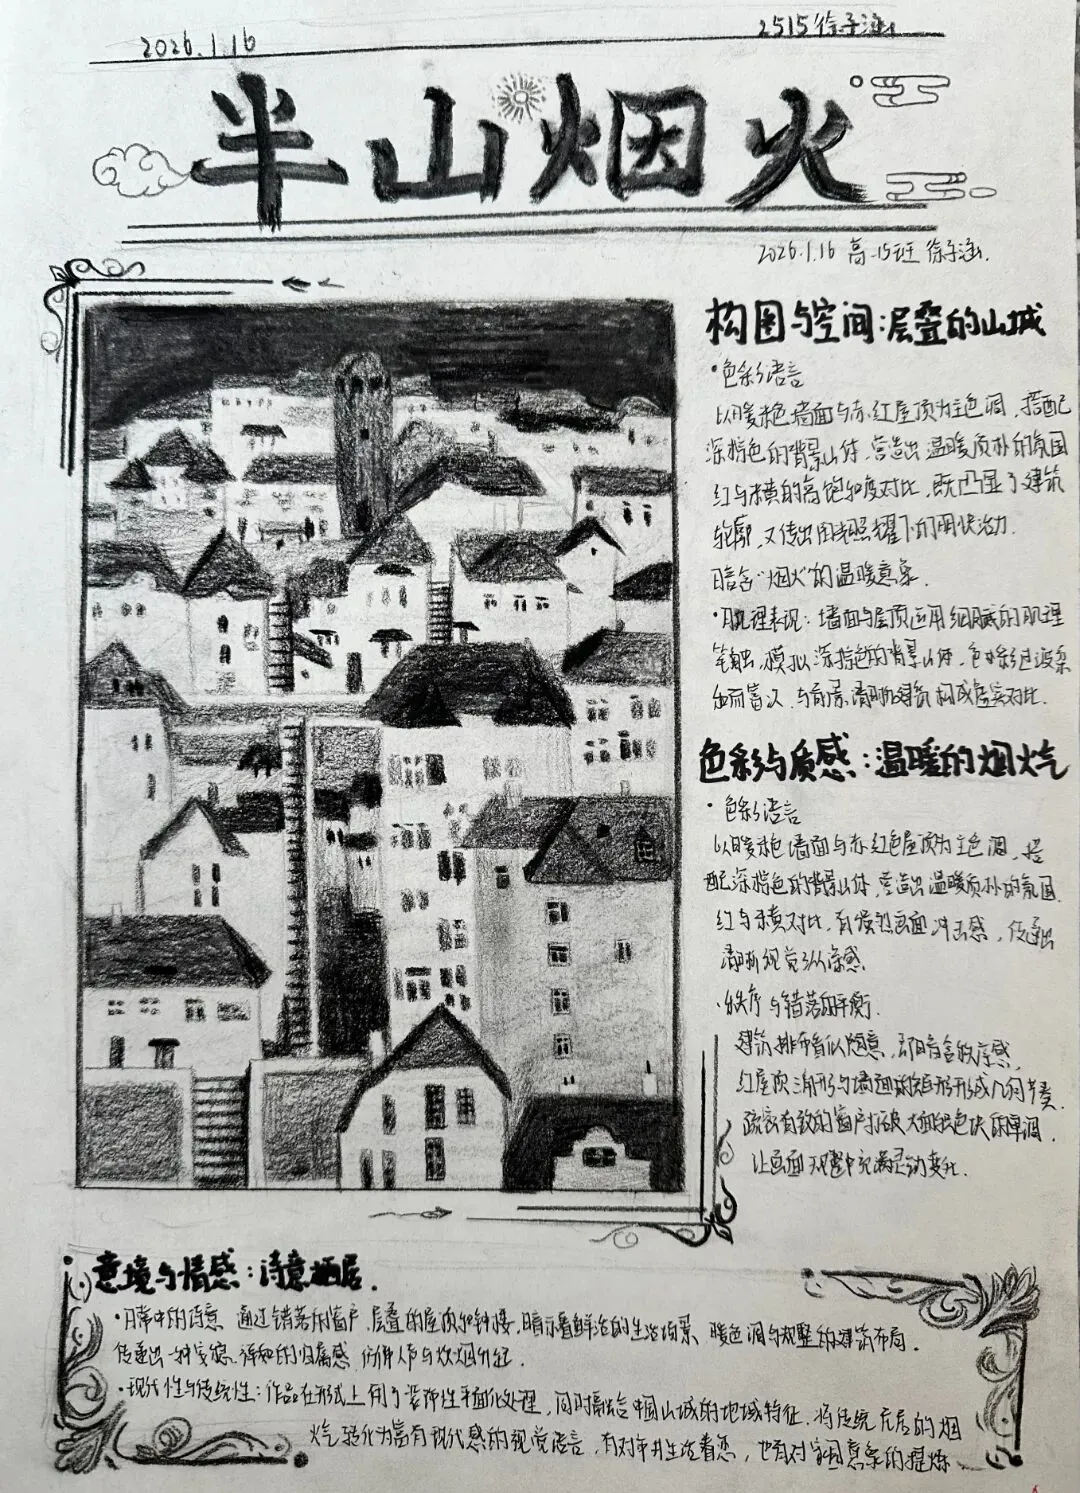 2026.1.16
2515徐子涵
半山烟火
2026.1.16 高一15班 徐子涵.
构图与空间:层叠的山城
·色彩语言
以暖米色墙面与赤红屋顶为主色调，搭配
深棕色的背景山体，营造出温暖质朴的氛围
红与横的高饱和度对比，既凸显了建筑
轮廓，又传出阳光照耀下的明快活力.
暗含“烟火”的温暖意象.
·肌理表现：墙面与屋顶运用细腻的肌理
笔触，模拟深棕色的背景山体，色彩过渡柔
和而富义，与前景清晰的建筑构成虚实对比.
色彩与质感:温暖的烟火气
·色彩语言
以暖米色墙面与赤红色屋顶为主色调，搭
配深棕色的背景山体，营造出温暖质朴的氛围.
红与对比，画面冲击感，传递出
清晰视觉纵深感.
·秩序与错落的平衡.
建筑排布看似随意，却暗含秩序感，
红屋顶三角形与墙面的矩形形成几何节奏.
疏密有致的窗户打破大面积色块的单调，
让画面中充满灵动变化.
意境与情感:诗意栖居.
·日常中的诗意 通过错落的窗户，层叠的屋顶和钟楼，暗示着鲜活的生活场景 暖色调与规整的建筑布局.
传递出一种安稳、祥和的归属感，仿佛人声与炊烟.
·现代性与传统性：作品在形式上用了装饰性平面化处理，同时融合中国山城的地域特征，将传统瓦居的烟
火气转化为富有现代感的视觉语言，有对市井生活眷恋，也有对家园意象的提炼